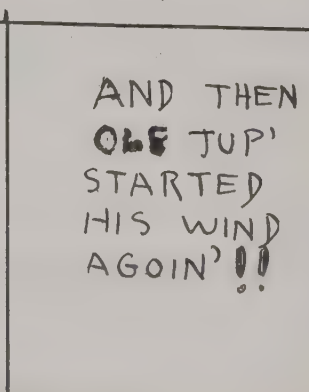 AND THEN
OLE JUP'
STARTED
HIS WIND
AGOIN'!!